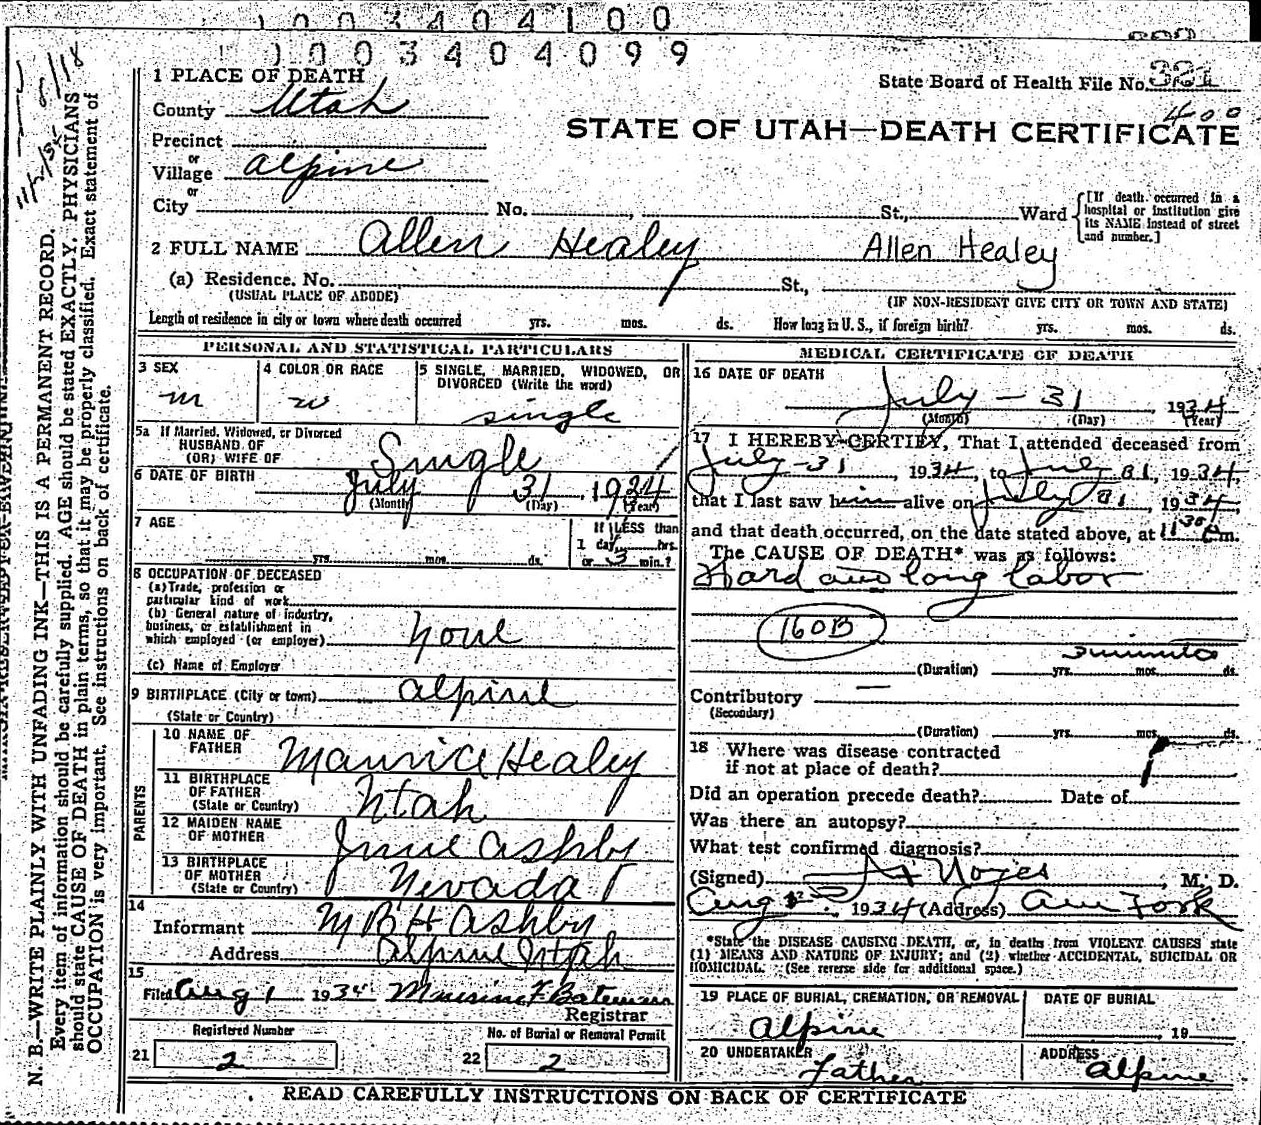 1003404100
1003404099
1 PLACE OF DEATH
State Board of Health File No. 321
County Utah
400
STATE OF UTAH—DEATH CERTIFICATE
Precinct
or
Village Alpine
or
City No. , St., Ward
[If death occurred in a
hospital or institution give
its NAME instead of street
and number.]
2 FULL NAME Allen Healey Allen Healey
(a) Residence. No. St.,
(USUAL PLACE OF ABODE) (IF NON-RESIDENT GIVE CITY OR TOWN AND STATE)
Length of residence in city or town where death occurred yrs. mos. ds. How long in U. S., if foreign birth? yrs. mos. ds.
PERSONAL AND STATISTICAL PARTICULARS
3 SEX
m
4 COLOR OR RACE
w
5 SINGLE, MARRIED, WIDOWED, OR
DIVORCED (Write the word)
single
5a If Married, Widowed, or Divorced
HUSBAND OF
(OR) WIFE OF Single
6 DATE OF BIRTH July 31 1934
(Month) (Day) (Year)
7 AGE
yrs. mos. ds.
If LESS than
1 day hrs.
or 3 min.?
8 OCCUPATION OF DECEASED
(a) Trade, profession or
particular kind of work
(b) General nature of industry,
business, or establishment in
which employed (or employer) None
(c) Name of Employer
9 BIRTHPLACE (City or town) Alpine
(State or Country)
PARENTS
10 NAME OF
FATHER Maurice Healey
11 BIRTHPLACE
OF FATHER
(State or Country) Utah
12 MAIDEN NAME
OF MOTHER Ashby
13 BIRTHPLACE
OF MOTHER
(State or Country) Nevada
14
Informant M B H Ashby
Address Alpine Utah
15
Filed Aug 1 1934 F. Bateman
Registrar
Registered Number
21 2
No. of Burial or Removal Permit
22 2
MEDICAL CERTIFICATE OF DEATH
16 DATE OF DEATH
July - 31, 1934
(Month) (Day) (Year)
17 I HEREBY CERTIFY, That I attended deceased from
July - 31, 1934, to July 31, 1934,
that I last saw him alive on July 31, 1934,
and that death occurred, on the date stated above, at 11 30 m.
The CAUSE OF DEATH* was as follows:
Hard and long labor
160B
3 minutes
(Duration) yrs. mos. ds.
Contributory —
(Secondary)
(Duration) yrs. mos. ds.
18 Where was disease contracted
if not at place of death?
Did an operation precede death? Date of
Was there an autopsy?
What test confirmed diagnosis?
(Signed) Noyes, M. D.
Aug , 1934 (Address) Am Fork
*State the DISEASE CAUSING DEATH, or, in deaths from VIOLENT CAUSES state
(1) MEANS AND NATURE OF INJURY; and (2) whether ACCIDENTAL, SUICIDAL OR
HOMICIDAL. (See reverse side for additional space.)
19 PLACE OF BURIAL, CREMATION, OR REMOVAL
Alpine
DATE OF BURIAL
19
20 UNDERTAKER
Father
ADDRESS
Alpine
READ CAREFULLY INSTRUCTIONS ON BACK OF CERTIFICATE
N. B.—WRITE PLAINLY WITH UNFADING INK—THIS IS A PERMANENT RECORD.
Every item of information should be carefully supplied. AGE should be stated EXACTLY. PHYSICIANS
should state CAUSE OF DEATH in plain terms, so that it may be properly classified. Exact statement of
OCCUPATION is very important. See instructions on back of certificate.